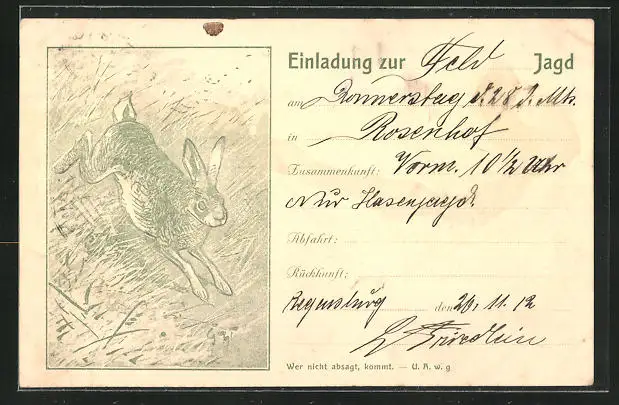 Einladung zur Feld Jagd
am Donnerstag d. 28 d. Mts.
in Rosenhof
Zusammenkunft: Vorm. 10 1/2 Uhr
Nur Hasenjagd.
Abfahrt:
Rückkunft:
Regensburg den 26. 11. 12
Wer nicht absagt, kommt. — U. A. w. g